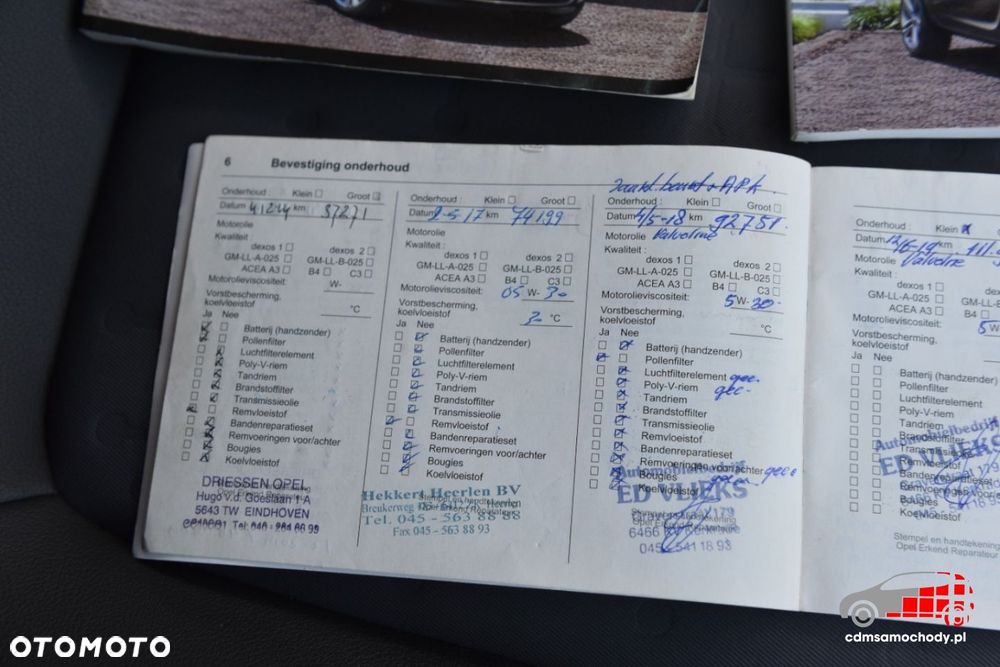 6 Bevestiging onderhoud
Onderhoud : Klein Groot
Datum 4/12/14 km 37271
Motorolie
Kwaliteit :
dexos 1 dexos 2
GM-LL-A-025 GM-LL-B-025
ACEA A3 B4 C3
Motorolieviscositeit: W-
Vorstbescherming,
koelvloeistof °C
Ja Nee
Batterij (handzender)
Pollenfilter
Luchtfilterelement
Poly-V-riem
Tandriem
Brandstoffilter
Transmissieolie
Remvloeistof
Bandenreparatieset
Remvoeringen voor/achter
Bougies
Koelvloeistof
DRIESSEN OPEL
Hugo v.d. Goesstan 1-A
5643 TW EINDHOVEN
Onderhoud : Klein Groot
Datum 2-5-17 km 74199
Motorolie
Kwaliteit:
dexos 1 dexos 2
GM-LL-A-025 GM-LL-B-025
ACEA A3 B4 C3
Motorolieviscositeit: 05 W- 30
Vorstbescherming,
koelvloeistof 30 °C
Ja Nee
Batterij (handzender)
Pollenfilter
Luchtfilterelement
Poly-V-riem
Tandriem
Brandstoffilter
Transmissieolie
Remvloeistof
Bandenreparatieset
Remvoeringen voor/achter
Bougies
Koelvloeistof
Hekkert Heerlen BV
Tel. 045 - 563 88 98
Fax 045 - 563 88 93
+ APK
Onderhoud : Klein Groot
Datum 4/5-18 km 92751
Motorolie Valvoline
Kwaliteit:
dexos 1 dexos 2
GM-LL-A-025 GM-LL-B-025
ACEA A3 B4 C3
Motorolieviscositeit: 5 W- 30
Vorstbescherming,
koelvloeistof °C
Ja Nee
Batterij (handzender)
Pollenfilter
Luchtfilterelement gec.
Poly-V-riem gec.
Tandriem
Brandstoffilter
Transmissieolie
Remvloeistof
Bandenreparatieset
Remvoeringen voor/achter gec
Bougies
Koelvloeistof
Automobielbedrijf
ED VLIEKS
6466
Onderhoud : Klein
Datum 12/6-19 km 111.
Motorolie Valvoline
Kwaliteit :
dexos 1
GM-LL-A-025
ACEA A3
Motorolieviscositeit: 5 W
Vorstbescherming,
koelvloeistof
Ja Nee
Batterij (handzender)
Pollenfilter
Luchtfilterelement
Poly-V-riem
Tandriem
Brandstoffilter
Transmissieolie
Remvloeistof
Bandenreparatieset
Remvoeringen
Bougies
Koelvloeistof
Automobielbedrijf
ED VLIEKS
Stempel en handtekening
Opel Erkend Reparateur
OTOMOTO
cdmsamochody.pl